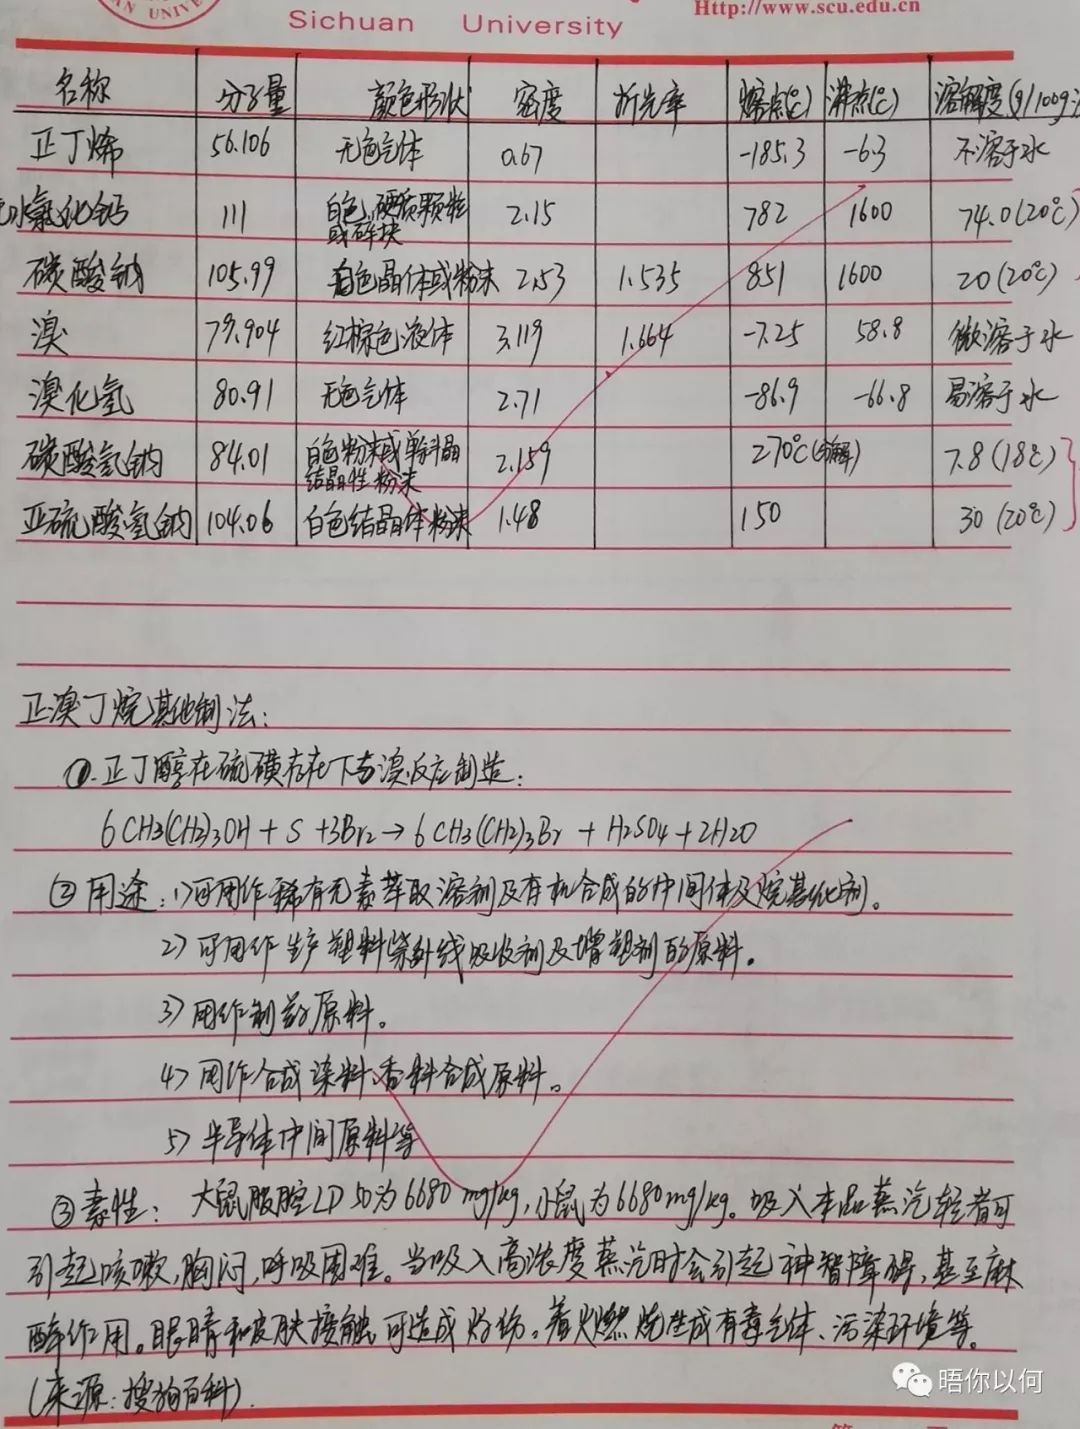 AN UNIVE
Sichuan University
Http://www.scu.edu.cn
名称 分子量 颜色形状 密度 折光率 熔点(℃) 沸点(℃) 溶解度(g/100g
正丁烯 56.106 无色气体 0.67 -185.3 -6.3 不溶于水
水氯化钙 111 白色,硬质颗粒或碎块 2.15 782 1600 74.0(20℃)
碳酸钠 105.99 白色晶体或粉末 2.53 1.535 851 1600 20(20℃)
溴 79.904 红棕色液体 3.119 1.664 -7.25 58.8 微溶于水
溴化氢 80.91 无色气体 2.71 -86.9 -66.8 易溶于水
碳酸氢钠 84.01 白色粉末或单斜晶结晶性粉末 2.159 270℃(分解) 7.8(18℃)
亚硫酸氢钠 104.06 白色结晶体粉末 1.48 150 30(20℃)
正溴丁烷其他制法:
①.正丁醇在硫磺存在下与溴反应制造:
6CH3(CH2)3OH + S +3Br2→6CH3(CH2)3Br + H2SO4+2H2O
②用途:1)可用作稀有元素萃取溶剂及有机合成的中间体及烷基化剂。
2)可用作生产塑料紫外线吸收剂及增塑剂的原料。
3)用作制药原料。
4)用作合成染料、香料合成原料。
5)半导体中间原料等
③毒性: 大鼠腹腔LD50为6680mg/kg,小鼠为6680mg/kg。吸入本品蒸汽轻者可
引起咳嗽,胸闷,呼吸困难。当吸入高浓度蒸汽时会引起神智障碍,甚至麻
醉作用。眼睛和皮肤接触可造成灼伤。着火燃烧生成有毒气体、污染环境等。
(来源:搜狗百科).
晤你以何